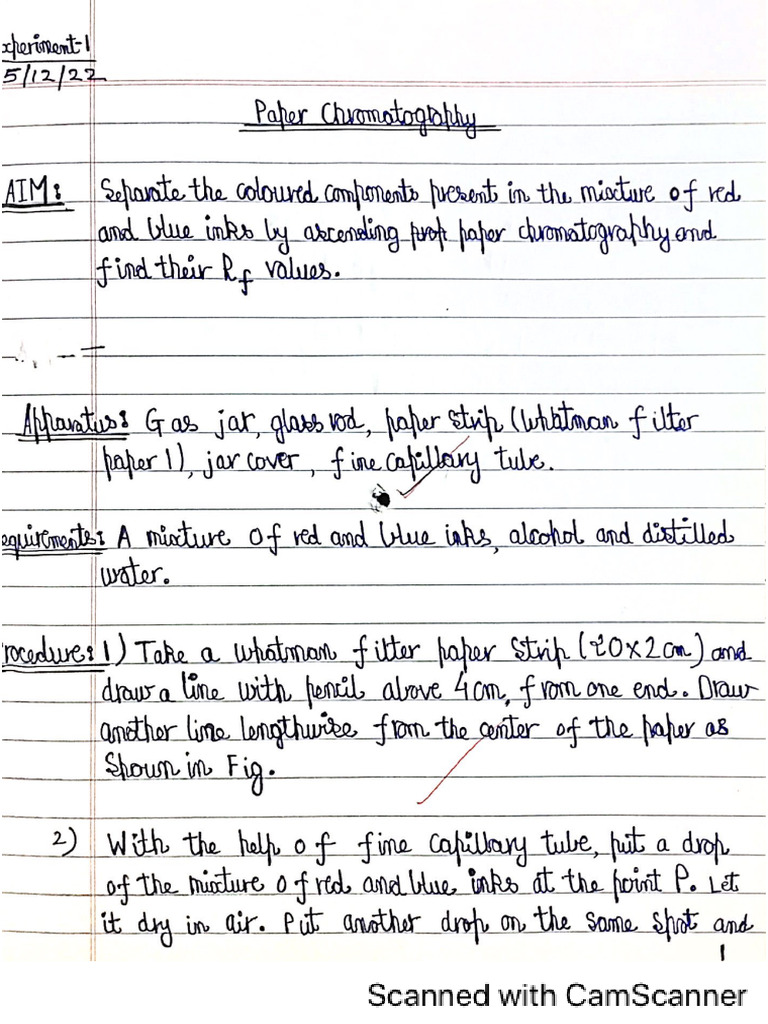 xperiment-1
5/12/22
Paper Chromatography
AIM: Separate the coloured components present in the mixture of red
and blue inks by ascending prop paper chromatography and
find their Rf values.
Apparatus: Gas jar, glass rod, paper strip (Whatman filter
paper 1), jar cover, fine capillary tube.
equirements: A mixture of red and blue inks, alcohol and distilled
water.
rocedure: 1) Take a whatman filter paper strip (20x2cm) and
draw a line with pencil above 4cm, from one end. Draw
another line lengthwise from the center of the paper as
Shown in Fig.
2) With the help of fine capillary tube, put a drop
of the mixture of red and blue inks at the point P. Let
it dry in air. Put another drop on the same spot and
1
Scanned with CamScanner